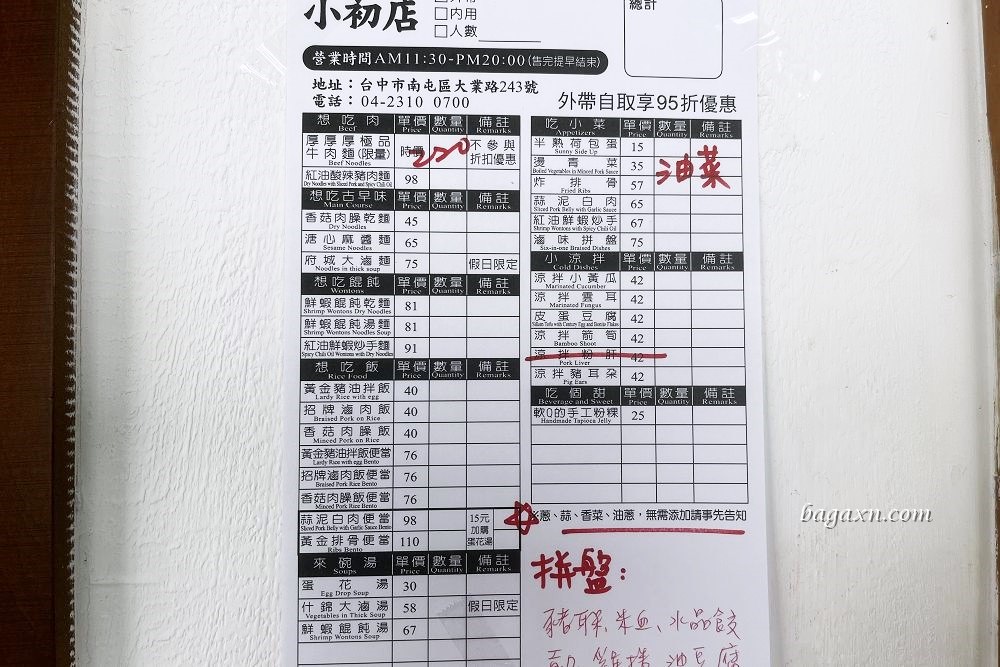 小初店
□內用
□人數
總計
營業時間AM11:30-PM20:00(售完提早結束)
地址：台中市南屯區大業路243號
電話：04-2310 0700
外帶自取享95折優惠
想吃肉 Beef 單價 Price 數量 Quantity 備註 Remarks
厚厚厚極品牛肉麵(限量) Beef Noodles 時價 220 不參與折扣優惠
紅油酸辣豬肉麵 Dry Noodles with Sliced Pork and Spicy Chili Oil 98
想吃古早味 Main Course 單價 Price 數量 Quantity 備註 Remarks
香菇肉臊乾麵 Dry Noodles 45
溏心麻醬麵 Sesame Noodles 65
府城大滷麵 Noodles in thick soup 75 假日限定
想吃餛飩 Wontons 單價 Price 數量 Quantity 備註 Remarks
鮮蝦餛飩乾麵 Shrimp Wontons Dry Noodles 81
鮮蝦餛飩湯麵 Shrimp Wontons Noodles Soup 81
紅油鮮蝦抄手麵 Spicy Chili Oil Wontons with Dry Noodles 91
想吃飯 Rice Food 單價 Price 數量 Quantity 備註 Remarks
黃金豬油拌飯 Lardy Rice with egg 40
招牌滷肉飯 Braised Pork on Rice 40
香菇肉臊飯 Minced Pork on Rice 40
黃金豬油拌飯便當 Lardy Rice with egg Bento 76
招牌滷肉飯便當 Braised Pork Rice Bento 76
香菇肉臊飯便當 Minced Pork Rice Bento 76
蒜泥白肉便當 Sliced Pork Belly with Garlic Sauce Bento 98 15元加購蛋花湯
黃金排骨便當 Ribs Bento 110
來碗湯 Soups 單價 Price 數量 Quantity 備註 Remarks
蛋花湯 Egg Drop Soup 30
什錦大滷湯 Vegetables in Thick Soup 58 假日限定
鮮蝦餛飩湯 Shrimp Wontons Soup 67
吃小菜 Appetizers 單價 Price 數量 Quantity 備註 Remarks
半熟荷包蛋 Sunny Side Up 15
燙青菜 Boiled Vegetables in Minced Pork Sauce 35 油菜
炸排骨 Fried Ribs 57
蒜泥白肉 Sliced Pork Belly with Garlic Sauce 65
紅油鮮蝦炒手 Shrimp Wontons with Spicy Chili Oil 67
滷味拼盤 Six-in-one Braised Dishes 75
小涼拌 Cold Dishes 單價 Price 數量 Quantity 備註 Remarks
涼拌小黃瓜 Marinated Cucumber 42
涼拌雲耳 Marinated Fungus 42
皮蛋豆腐 Silken Tofu with Century Egg and Bonito Flakes 42
涼拌箭筍 Bamboo Shoot 42
涼拌粉肝 Pork Liver 42
涼拌豬耳朵 Pig Ears 42
吃個甜 Beverage and Sweet 單價 Price 數量 Quantity 備註 Remarks
軟Q的手工粉粿 Handmade Tapioca Jelly 25
※蔥、蒜、香菜、油蔥，無需添加請事先告知
bagaxn.com
拼盤：
豬耳朵、米血、水晶餃
油豆腐